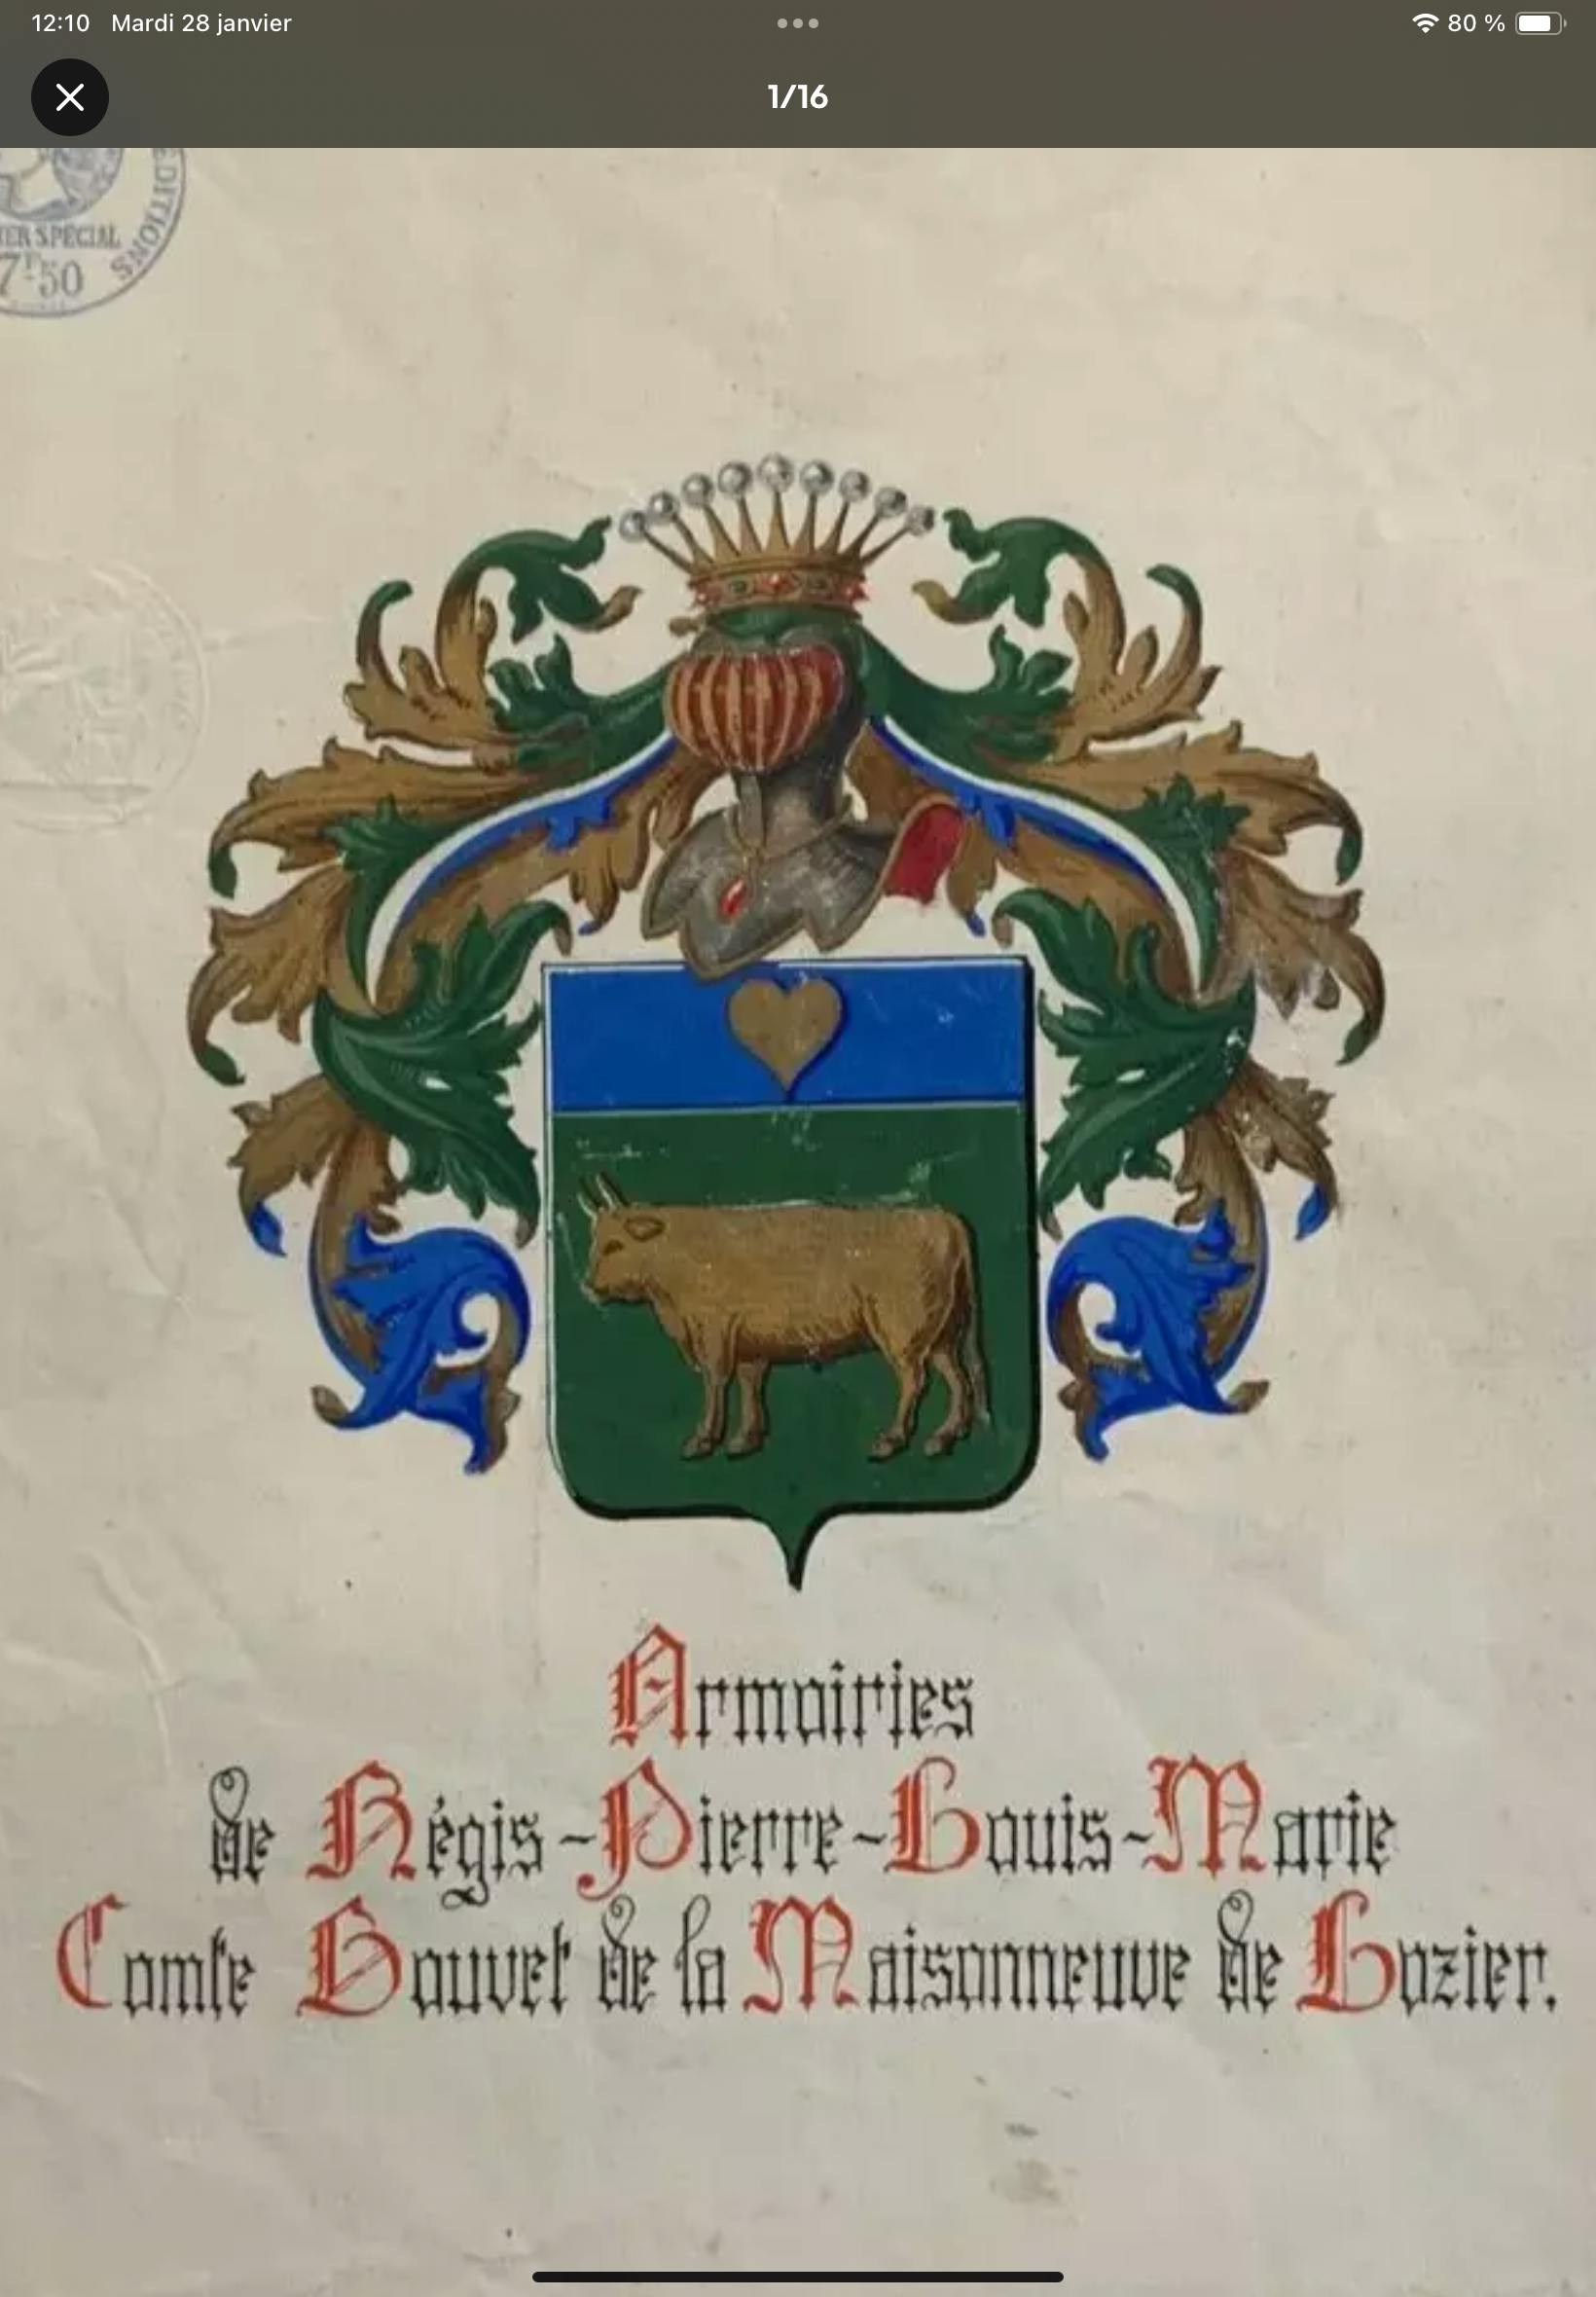 12:10 Mardi 28 janvier 80 %
1/16
ÉDITIONS
SPÉCIAL
7F50
Armoiries
de Régis-Pierre-Louis-Marie
Comte Bouvet de la Maisonneuve de Lozier.